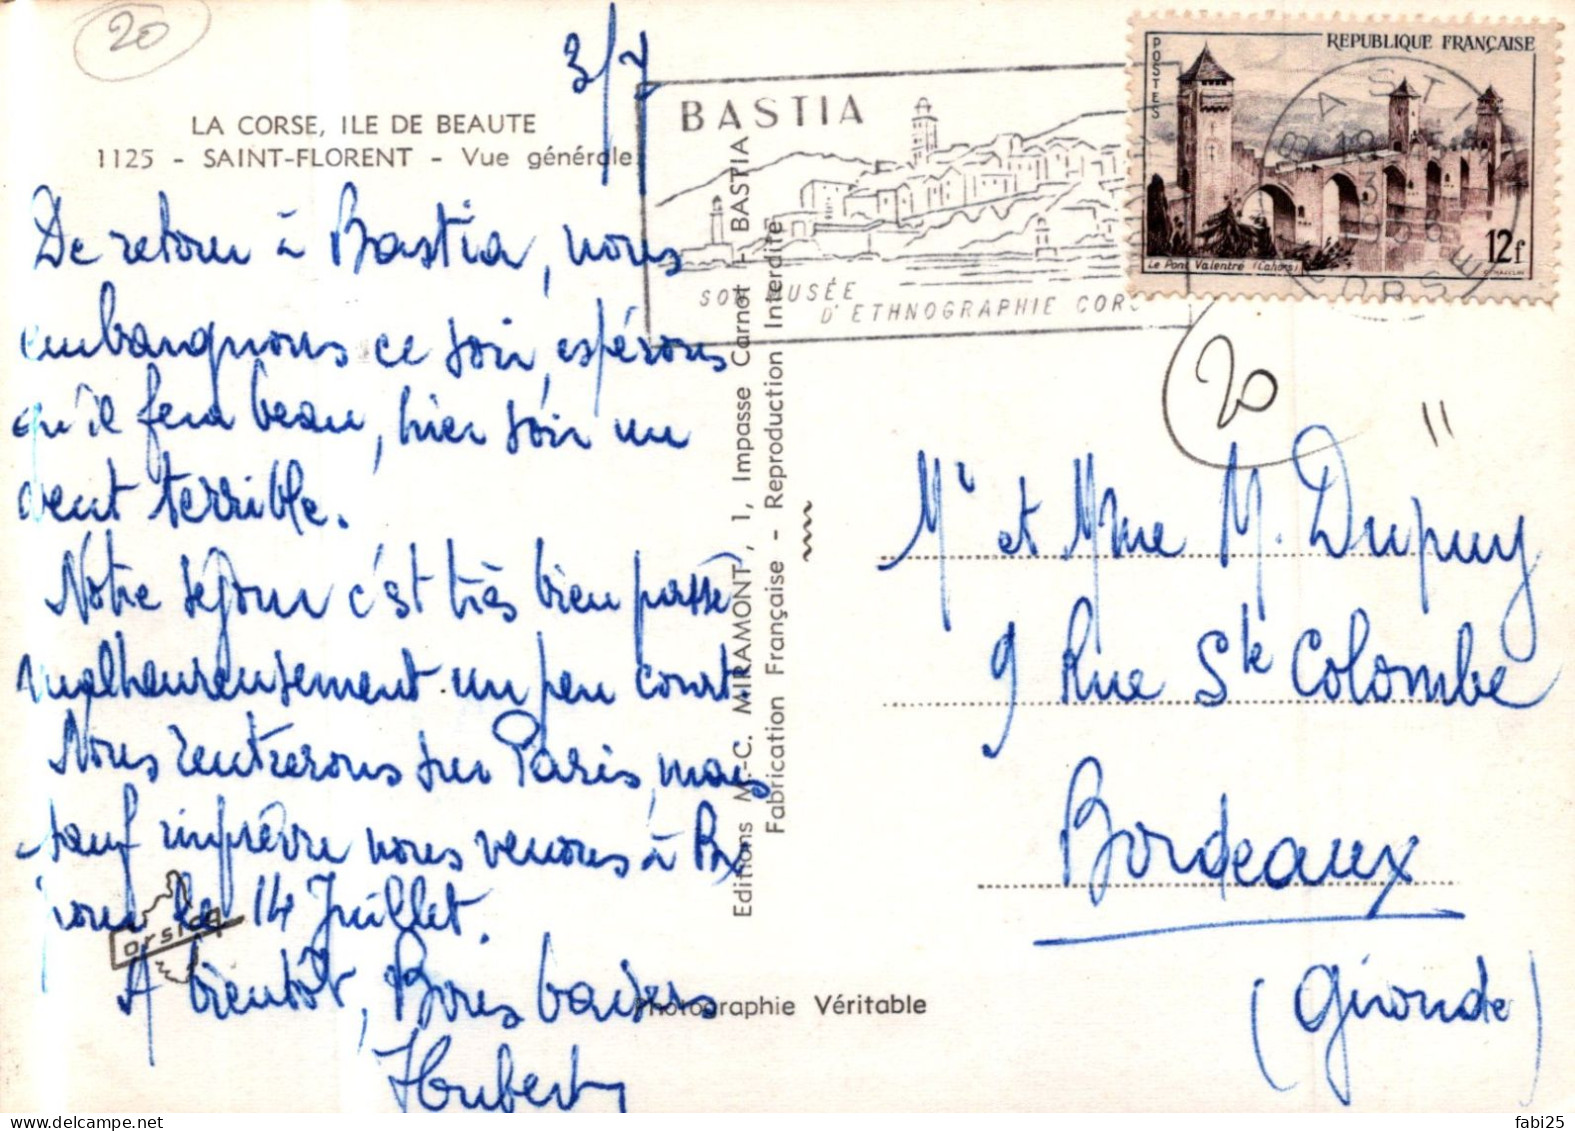 20
3/7
LA CORSE, ILE DE BEAUTE
1125 - SAINT-FLORENT - Vue générale
De retour à Bastia, nous
embarquons ce soir, espérons
qu'il fera beau, hier soir un
vent terrible.
Notre séjour c'est très bien passé
malheureusement un peu court.
Nous rentrerons sur Paris, mais
sauf imprévu nous venons à Bx
pour le 14 Juillet.
A bientôt, Bons baisers
Hubert
Corsica
Editions M.-C. MIRAMONT, 1, Impasse Carnot - BASTIA
Fabrication Française - Reproduction Interdite
Photographie Véritable
BASTIA
SON MUSÉE
D'ETHNOGRAPHIE CORSE
POSTES
REPUBLIQUE FRANÇAISE
Le Pont Valentré (Cahors)
12f
BASTIA
CORSE
20
11
Mr et Mme M. Dupuy
9 Rue Ste Colombe
Bordeaux
(Gironde)
fabi25